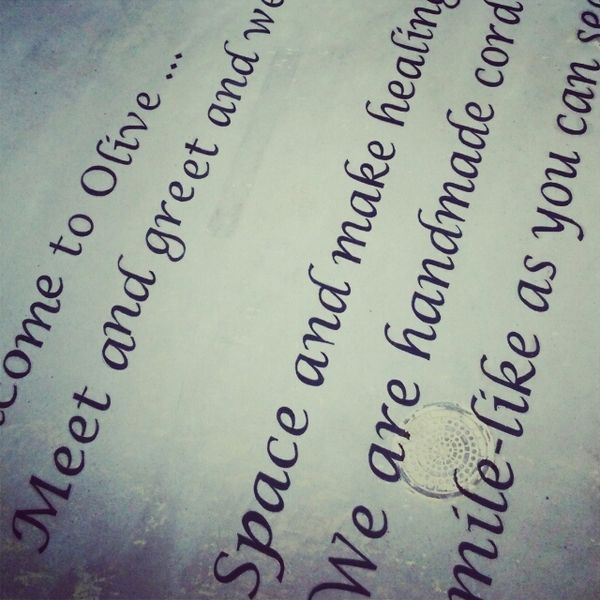 come to Olive ...
Meet and greet and we
Space and make healing
We are handmade cord
mile-like as you can see